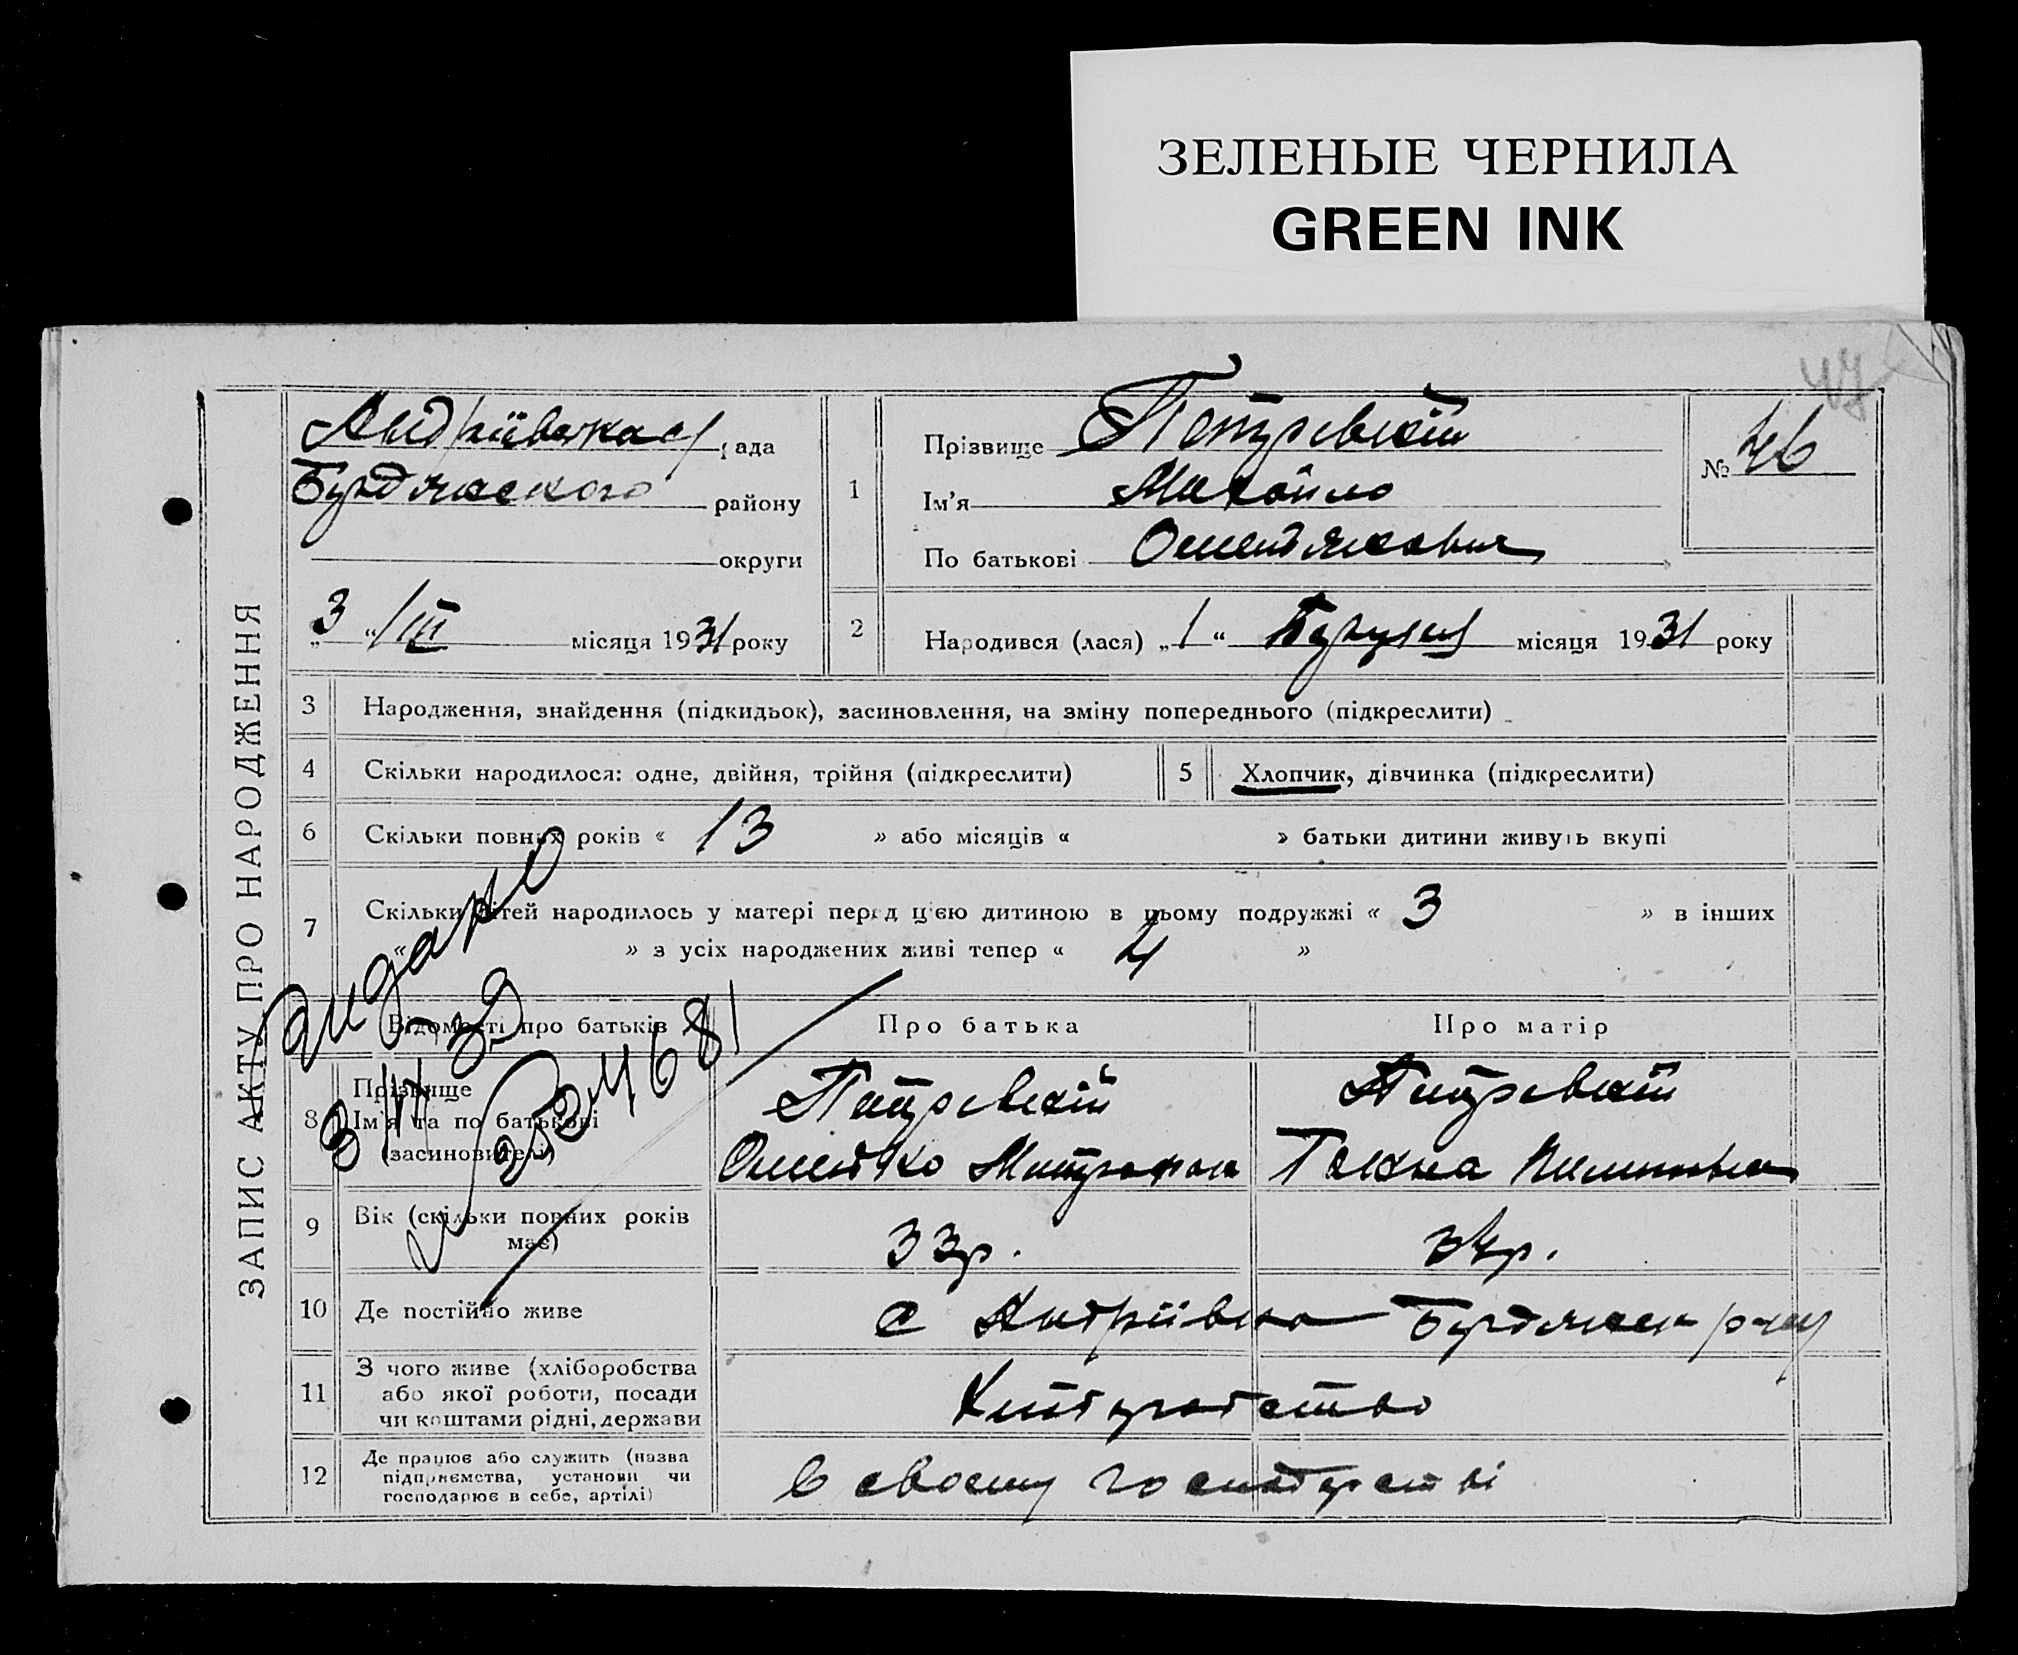 ЗЕЛЕНЫЕ ЧЕРНИЛА
GREEN INK
ЗАПИС АКТУ ПРО НАРОДЖЕННЯ
Андріївська рада
Бердянського району
округи
„3“ III місяця 1931 року
1
Прізвище
Ім'я Михайло
По батькові
№ 46
2
Народився (лася) „1“ Березня місяця 1931 року
3 Народження, знайдення (підкидьок), засиновлення, на зміну попереднього (підкреслити)
4 Скільки народилося: одне, двійня, трійня (підкреслити)
5 Хлопчик, дівчинка (підкреслити)
6 Скільки повних років « 13 » або місяців « » батьки дитини живуть вкупі
7 Скільки дітей народилось у матері перед цією дитиною в цьому подружжі « 3 » в інших
« » з усіх народжених живі тепер « 4 »
Відомості про батьків
Про батька
Про матір
8 Прізвище
Ім'я та по батькові
(засиновителі)
9 Вік (скільки повних років має)
33 р.
34 р.
10 Де постійно живе
с Андріївка Бердянськ р-ну
11 З чого живе (хліборобства
або якої роботи, посади
чи коштами рідні, держави
Хліборобство
12 Де працює або служить (назва
підприємства, установи чи
господарює в себе, артілі)
В своему господарстві